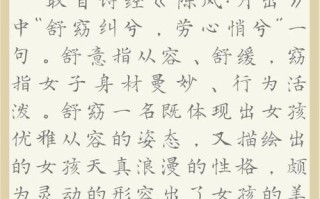 取自诗经《陈风·月出》
中“舒窈纠兮，劳心悄兮”一
句。舒意指从容、舒缓，窈
指女子身材曼妙、行为活
泼。舒窈一名既体现出女孩
优雅从容的姿态，又描绘出
的女孩天真浪漫的性格，颇
为灵动的形容出了女孩的美